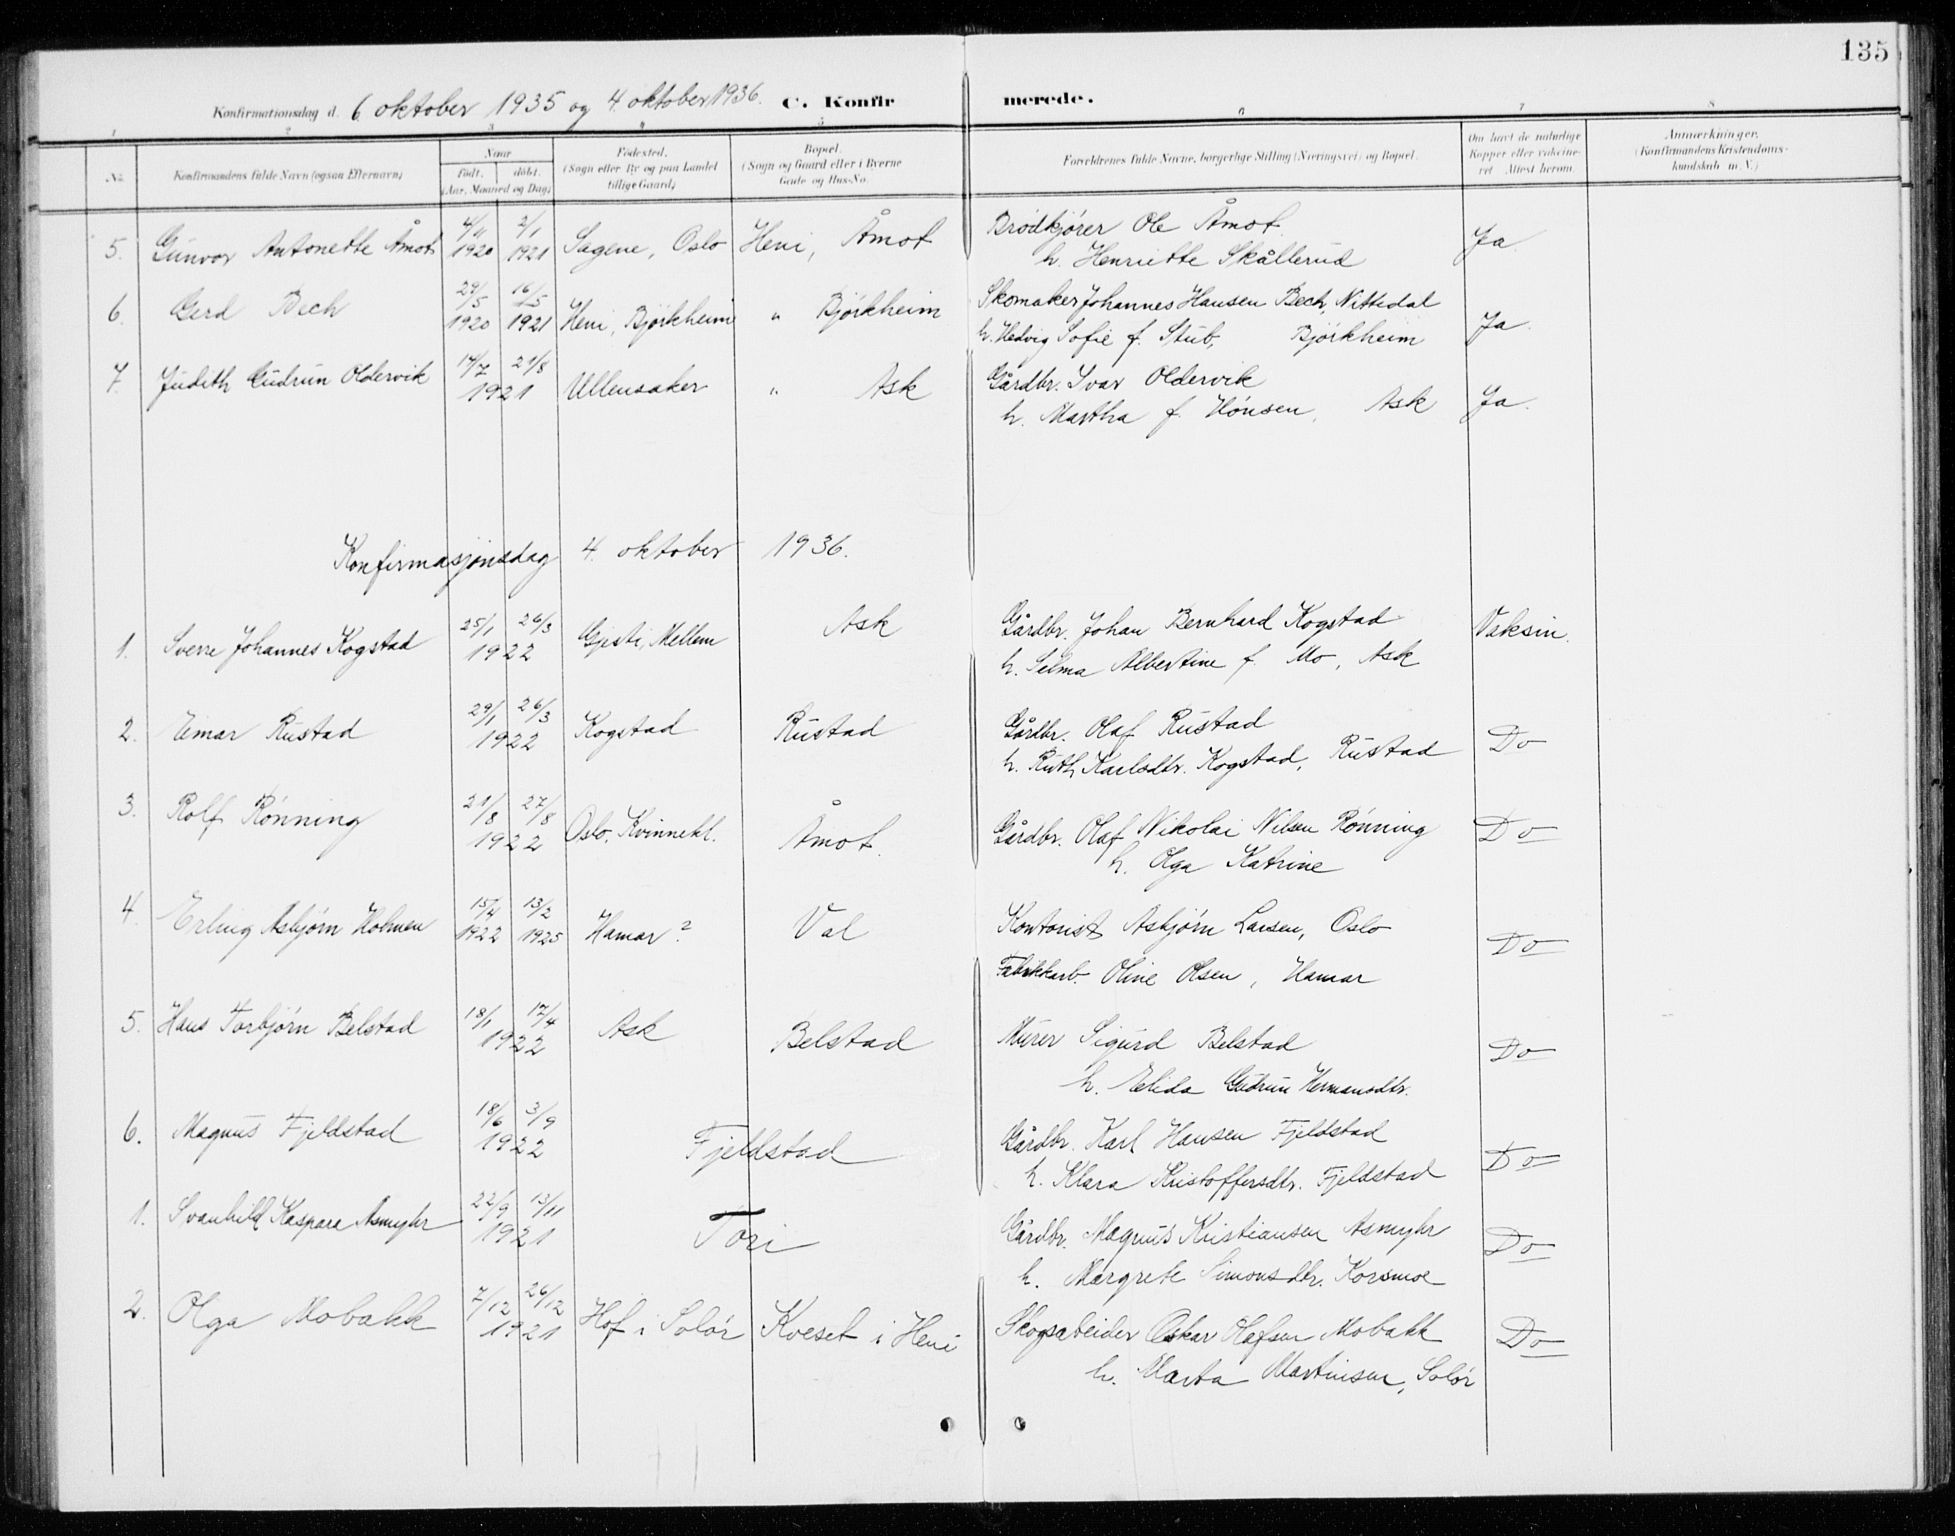 135
Konfirmationsdag d. 6 oktober 1935 og 4. oktober 1936. C. Konfirmerede.
1 2 3 4 5 6 7 8
No. Konfirmandens fulde Navn (ogsaa Efternavn) Naar født. døbt. (Aar, Maaned og Dag) Fødested. (Sogn eller By og paa Landet tillige Gaard) Bopæl. (Sogn og Gaard eller i Byerne Gade og Hus-No. Forældrenes fulde Navne, borgerlige Stilling (Næringsvei) og Bopæl. Om havt de naturlige Kopper eller vakcineret. Attest herom. Anmærkninger. (Konfirmandens Kristendomskundskab m. V.)
5. Gunvor Antonette Åmot 4/11 1920 2/1 1921 Sagene, Oslo Heni, Åmot Brödkjörer Ole Åmot Ja
h. Henriette Skållerud
6. Gerd Bech 29/5 1920 16/5 1921 Heni, Björkheim " Björkheim Skomaker Johannes Hansen Bech, Nittedal Ja.
h. Hedvig Sofie f. Stub, Björkheim
7. Judith Gudrun Oldervik 14/7 21/8 1921 Ullensaker " Ask Gårdbr. Ivar Oldervik Ja.
h. Martha f. Hönsen, Ask
Konfirmasjonsdag 4. oktober 1936.
1. Sverre Johannes Kogstad 25/1 26/3 1922 Gjesti, Mellem Ask Gårdbr. Johan Bernhard Kogstad Vaksin.
h. Selma Albertine f. Mo, Ask
2. Eimar Rustad 29/1 26/3 1922 Kogstad Rustad Gårdbr. Olaf Rustad Do
h. Ruth Karlsdtr. Kogstad, Rustad
3. Rolf Rönning 21/8 27/8 1922 Oslo, Kvinnekl. Åmot. Gårdbr. Olaf Nikolai Nilsen Rönning Do
h. Olga Katrine
4. Erling Asbjörn Holmen 15/4 1922 13/2 1925 Hamar? Val Kontorist Asbjörn Larsen, Oslo Do
Fabrikkarb. Oline Olsen, Hamar
5. Hans Torbjörn Belstad 18/1 17/4 1922 Ask Belstad Murer Sigurd Belstad Do
h. Elida Gudrun Hermansdtr.
6. Magnus Fjeldstad 18/6 3/9 1922 Fjeldstad Gårdbr. Karl Hansen Fjeldstad Do
h. Klara Kristoffersdtr. Fjeldstad
1. Svanhild Kaspara Asmyhr 22/9 13/11 1921 Tori Gårdbr. Magnus Kristiansen Asmyhr Do
h. Margrete Simonsdtr. Korsmoe
2. Olga Mobakk 7/12 26/12 1921 Hof i Solör Kveset i Heni Skogsarbeider Oskar Olafsen Mobakk Do
h. Marta Martinsen, Solör